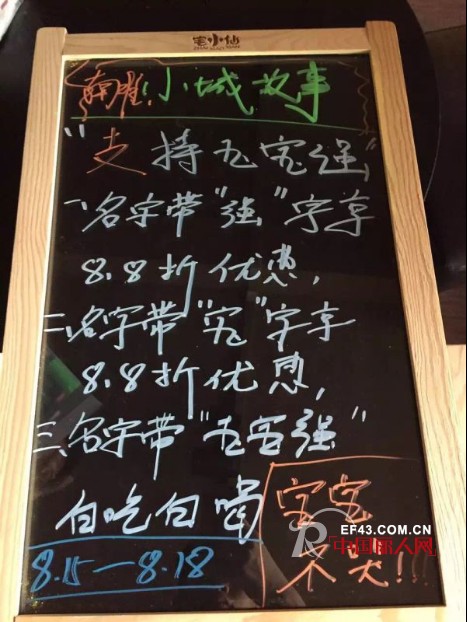 宅小仙
小城故事
"支持王宝强"
一、名字带"强"字享
8.8折优惠，
二、名字带"宝"字享
8.8折优惠，
三、名字带"王宝强"
白吃白喝
8.15—8.18
宝宝
不哭!!!
EF43.COM.CN